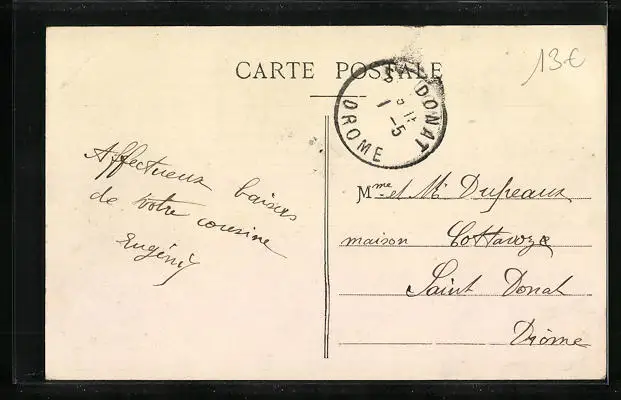 CARTE POSTALE
13€
ST DONAT
1 -5
DROME
Affectueux baisers
de votre cousine
Eugénie
Mme et Mr Dupeaux
maison
Saint Donat
Drôme